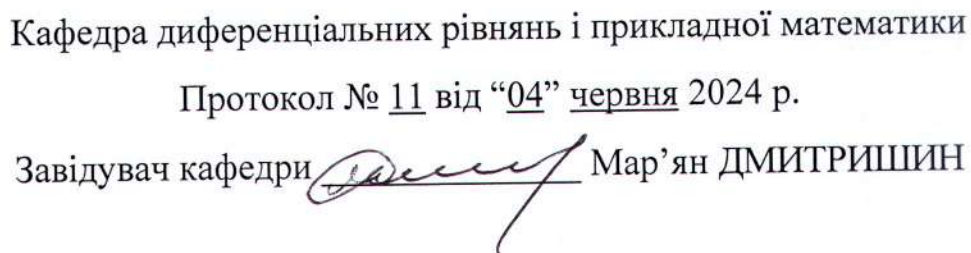 Кафедра диференціальних рівнянь і прикладної математики
Протокол № 11 від “04” червня 2024 р.
Завідувач кафедри Мар’ян ДМИТРИШИН